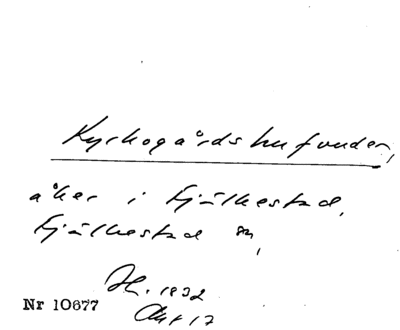 Kyrkogårdshufvuden,
åker i Fjälkestad,
Fjälkestad sn,
1832
Akt 17
Nr 10677